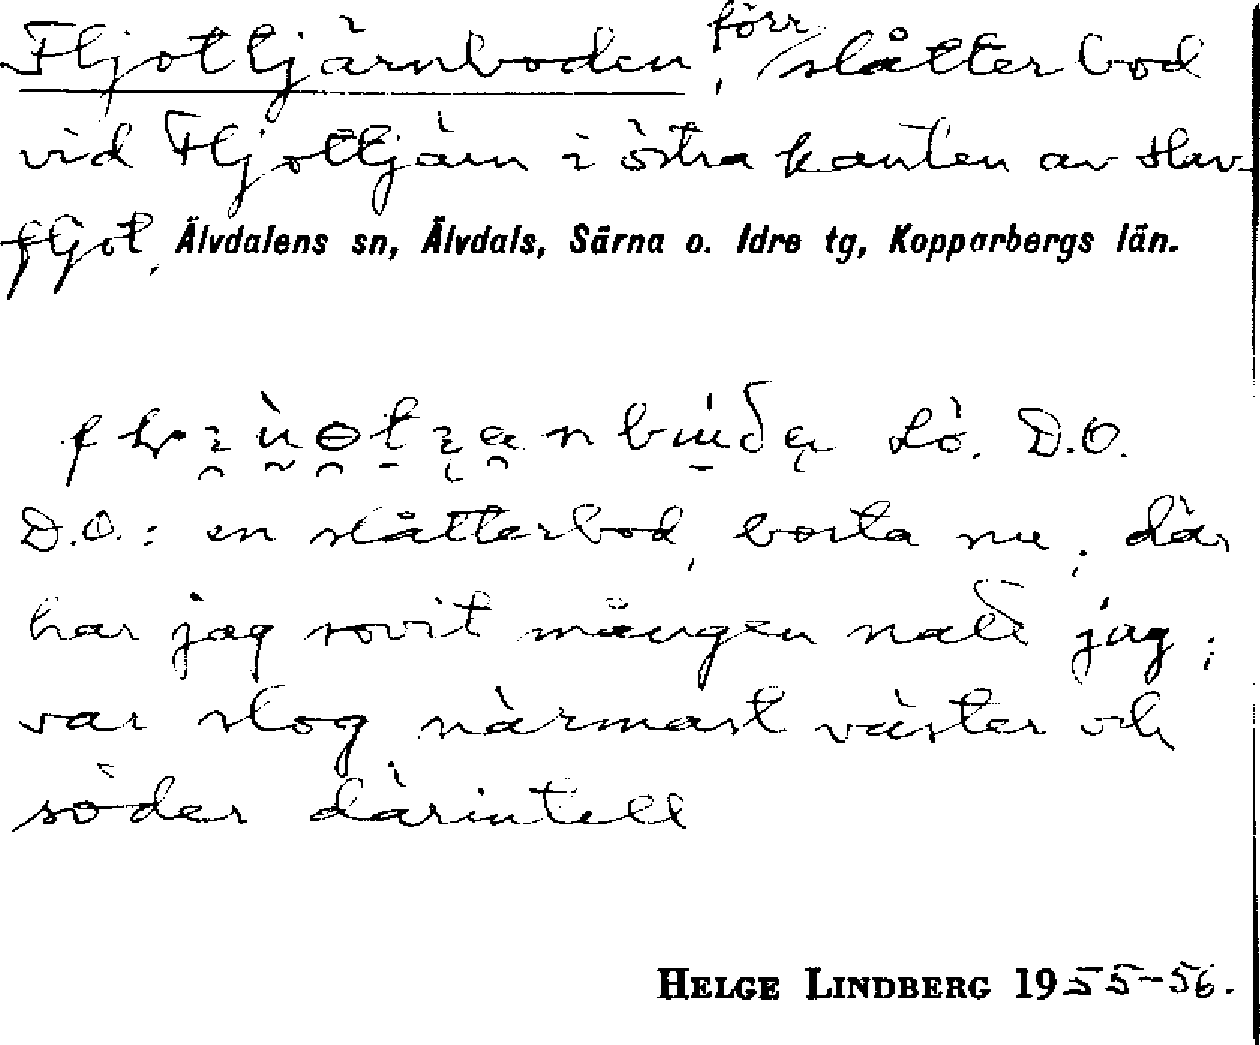 Fljottjärnboden, förr slåtterbod
vid Fljottjärn i östra kanten av Hav-
fljot, Älvdalens sn, Älvdals, Särna o. Idre tg, Kopparbergs län.
Lö. D.O.
D.O.: en slåtterbod, borta nu; där
har jag sovit mången natt jag;
var slog närmast väster och
söder därintill
HELGE LINDBERG 1955-56.